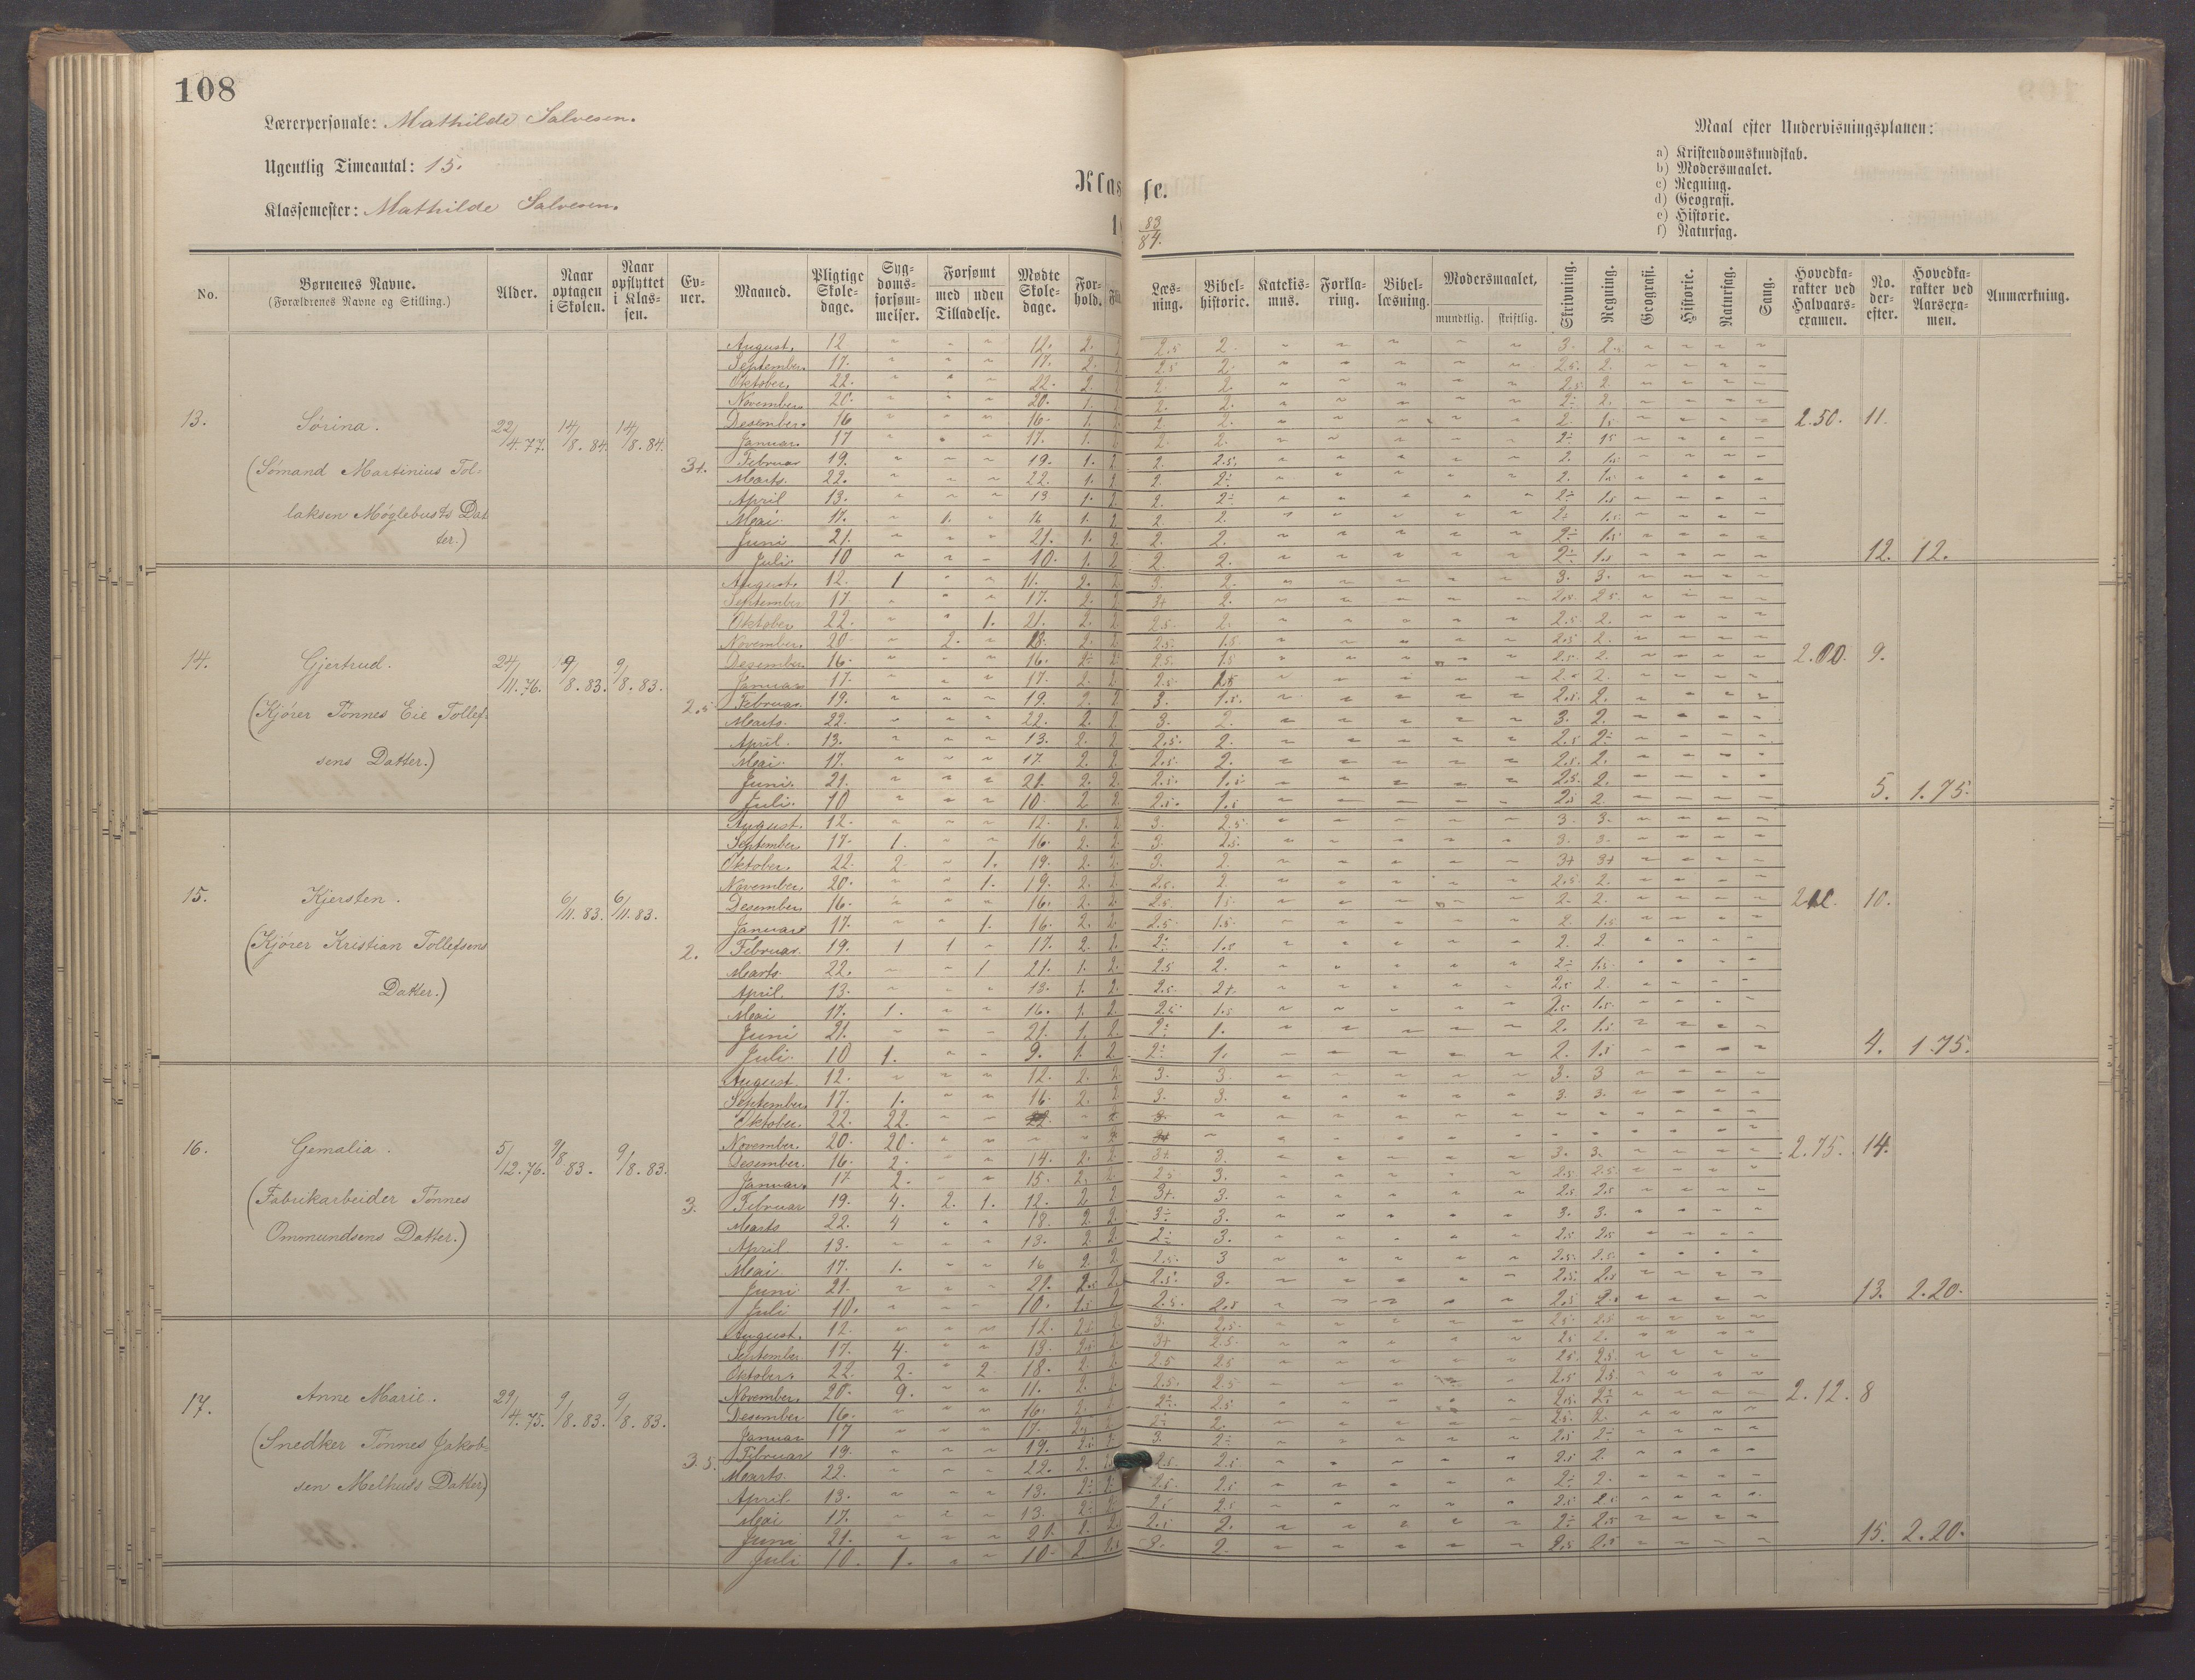 108
Lærerpersonale: Mathilde Salvesen.
Ugentlig Timeantal: 15.
Klassemester: Mathilde Salvesen.
Klasse.
83
84.
Maal efter Undervisningsplanen:
a) Kristendomskundskab.
b) Modersmaalet.
c) Regning.
d) Geografi.
e) Historie.
f) Naturfag.
No.
Børnenes Navne.
(Forældrenes Navne og Stilling.)
Alder.
Naar optagen i Skolen.
Naar opflyttet i Klassen.
Evner.
Maaned.
Pligtige Skoledage.
Sygdomsforsømmelser.
Forsømt
med uden
Tilladelse.
Mødte Skoledage.
Forhold.
Læsning.
Bibelhistorie.
Katekismus.
Forklaring.
Bibellæsning.
Modersmaalet,
mundtlig. skriftlig.
Skrivning.
Regning.
Geografi.
Historie.
Naturfag.
Sang.
Hovedkarakter ved Halvaarsexamen.
No. derefter.
Hovedkarakter ved Aarsexamen.
Anmærkning.
13. Sørina.
(Sömand Martinius Tol-
laksen Møglebusts Dat
ter.)
22/4.77. 14/8.84. 14/8.84. 3+.
August. 12 12. 2. 2.5 2. 3.
September. 17. 17. 2. 2.5 2. 2.5. 2.
Oktober. 22. 22. 2. 2. 2. 2.5. 2.
November. 20. 20. 1. 2. 2. 2.
Desember. 16 16. 1. 2. 2. 2. 1.5
Januar. 17 17. 1. 2. 2. 1.5
Februar 19. 19. 1. 2. 2. 2.5. 2.
Marts. 22. 22. 1. 2. 2.
April 13. 13 1. 2. 2. 1.5
Mai. 17. 1. 16 1. 2. 2. 2. 1.5.
Juni 21. 21. 1. 2. 2. 2. 1.5
Juli 10 10. 1. 2. 2. 2. 1.5
2.50. 11.
12. 12.
14. Gjertrud.
(Kjörer Tönnes Eie Tollef-
sens Datter.)
24/11.76. 9/8.83. 9/8.83. 2.5
August. 12. 1 11. 2. 2. 3. 2. 3. 3.
September 17 17. 2. 2 3+ 2. 2.5. 2.5.
Oktober 22. 1. 21. 2. 2 2.5 2. 2.5 2.
November. 20. 2. 18. 2. 2 2.5. 1.5 2.5 2.
Desember. 16. 16. 2. 2.5. 1.5 2.5. 2.
Januar 17. 17. 2. 2 2.5 2.
Februar. 19. 19. 2. 2 3. 1.5. 2.5. 2.
Marts. 22. 22. 2. 2. 3. 2. 3. 2.
April. 13. 13. 2. 2 2.5. 2. 2.5
Mai. 17. 17. 2. 2 2.5. 2. 2.5. 2.
Juni. 21. 21. 2. 2. 2.5. 1.5 2.5. 2.
Juli. 10 10. 2 2. 2.5. 1.5 2.5 2.
2.00. 9.
5. 1.75.
15. Kjersten.
(Kjörer Kristian Tollefsens
Datter.)
6/11.83. 6/11.83. 2.
August. 12. 12. 2. 2 3. 2.5. 3. 3.
September 17. 1. 16. 2. 2 3. 2.5. 3. 3.
Oktober. 22. 2 1. 19. 2. 2. 3. 2. 3+ 3+
November. 20. 1. 19. 2. 2. 2.5. 2. 2.5. 2.
Desember. 16. 16. 2. 2. 2.5. 1.5. 2. 2.
Januar 17. 1. 16. 2. 2 2.5 1.5. 2. 1.5
Februar. 19. 1 1 17. 2. 2. 1.5 2. 2.
Marts. 22. 1 21. 1. 2. 2.5 2. 1.5.
April. 13. 13. 1. 2. 2.5. 2+. 2.5 2.
Mai 17. 1. 16. 1. 2. 2.5 1.5 2.5 1.5.
Juni 21. 21. 1. 2. 1. 2. 1.5
Juli. 10 1. 9. 1. 2. 1. 2. 1.5
10.
4. 1.75.
16. Gemalia.
(Fabrikarbeider Tönnes
Ommundsens Datter.)
5/12.76. 9/8 83. 9/8.83. 3.
August. 12. 12. 2. 2. 3. 3. 3. 3
September. 17. 1. 16. 2. 2 3. 3. 3. 3.
Oktober. 22. 22.
November. 20. 20.
Desember. 16. 2. 14. 2. 2. 3+ 3. 3. 3.
Januar. 17 2. 15. 2. 2. 2.5 3. 2.5 2.5
Februar 19. 4. 2. 1. 12. 2. 2 3+. 3. 2.5 2.5
Marts 22. 4 18. 2. 2. 3. 3. 3.
April. 13. 13. 2. 2. 3. 2.5 2.5
Mai 17. 1. 16 2. 2 2.5. 3 2.5. 2.5.
Juni 21. 21. 2.5 2. 2.5. 3. 2.5. 2.5
Juli 10. 10. 1.5 2 2.5. 2.5 2.5 2.
2.75. 14.
13. 2.20.
17. Anne Marie.
(Snedker Tönnes Jakob-
sen Melhuss Datter)
29/4.75. 9/8.83. 9/8.83. 3.5.
August. 12. 12. 2.5 2. 3. 2.5. 2.5. 2.5
September 17. 4. 13. 2.5 2. 3+ 2.5. 2.5 2.
Oktober. 22. 2. 2 18. 2. 2. 2.5 2.5 2.5. 2.5.
November. 20. 9. 11. 2. 2. 2.5. 2.5 2.5 2.5.
Desember 16. 16. 2. 2.5 2.5.
Januar 17 17. 2. 2.5. 2.
Februar 19. 19. 3. 2.5
Marts. 22. 22. 2. 2.5. 2.5 2.5 2.
April. 13. 13. 2.5. 2.5 2.
Mai 17. 13. 2.5 2.5 2.5 2.5
Juni 21. 21. 2. 2.5 2. 2.5
Juli 10. 1. 10. 2. 2. 2.5 2.5
2.12. 8
15. 2.20.